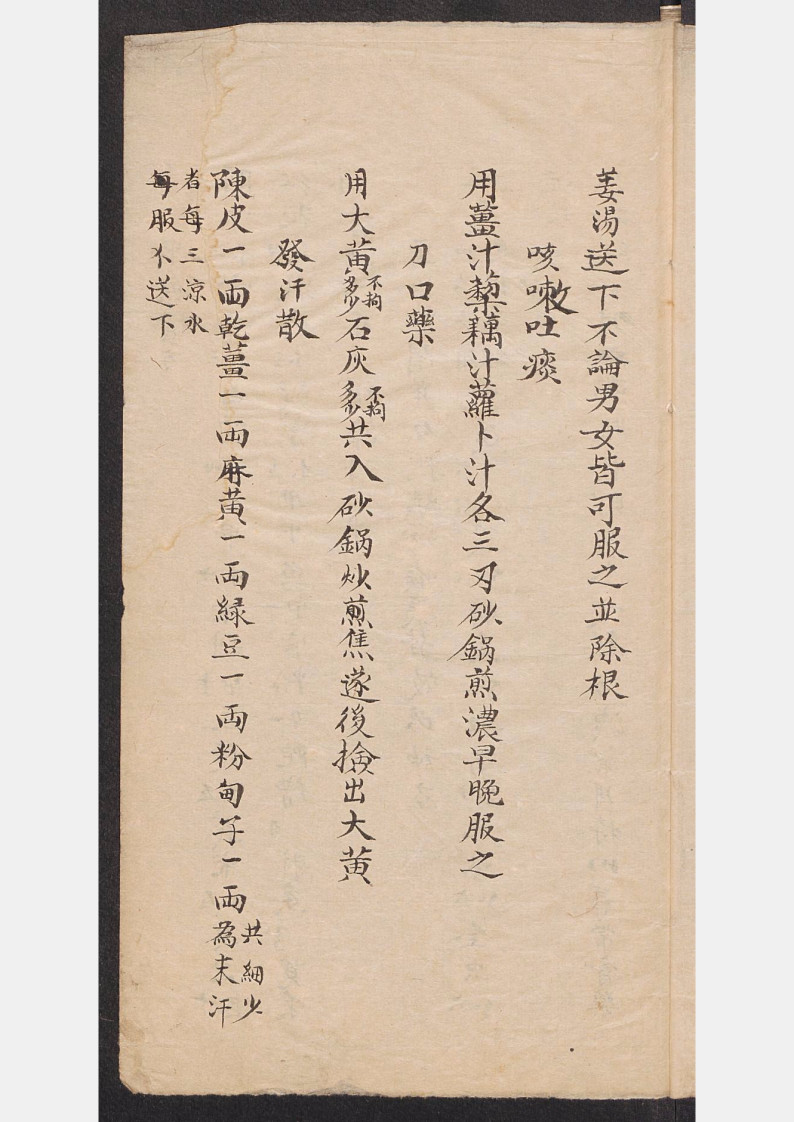 姜湯送下不論男女皆可服之並除根
咳嗽吐痰
用薑汁藕汁蘿卜汁各三刃砂鍋煎濃早晚服之
刀口藥
用大黄不拘多少石灰不拘多少共入砂鍋炒煎焦遂後撿出大黄
發汗散
陳皮一両乾薑一両麻黄一両緑豆一両粉甸子一両共細少為末汗
者每三凉水
每服不送下